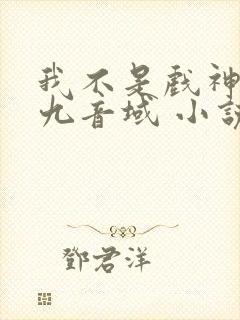 我不是戲神
九音域 小說
鄧君洋